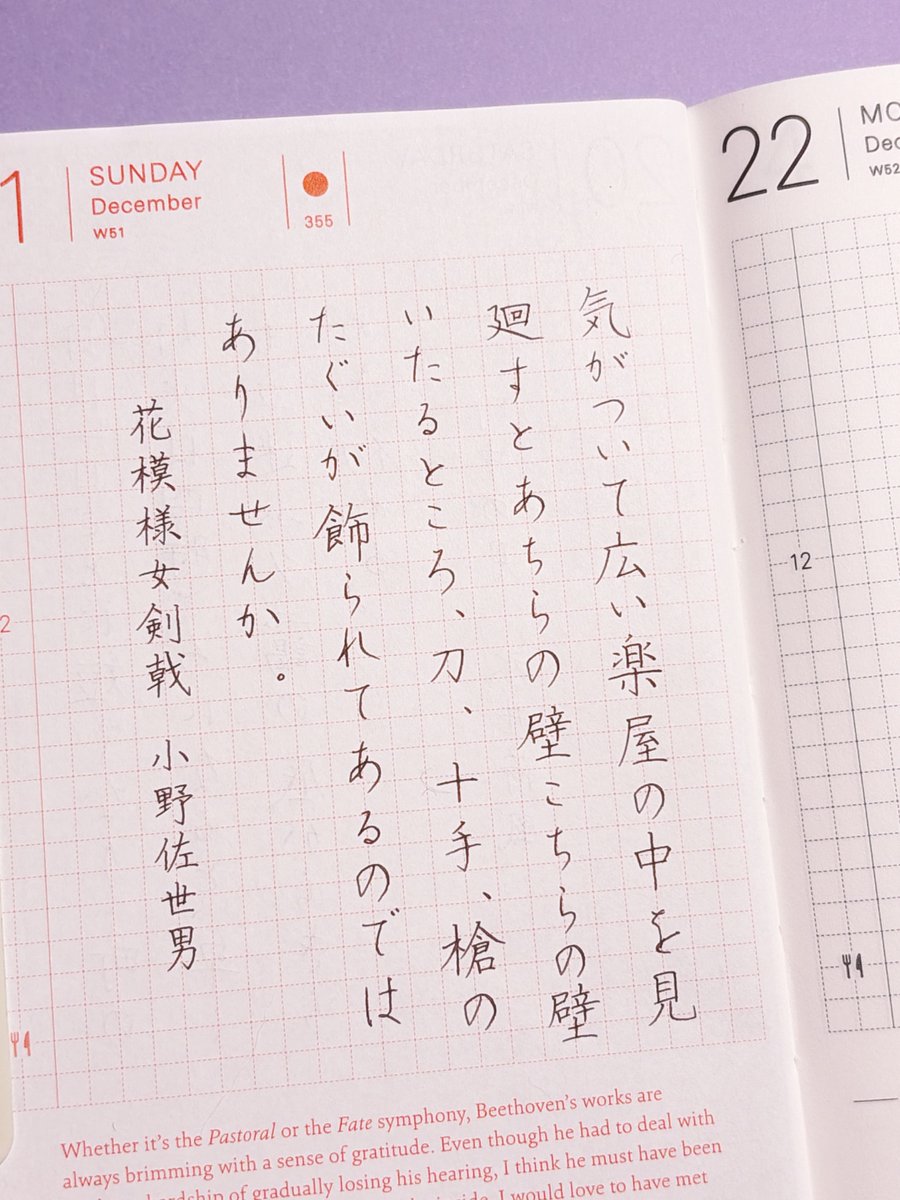 1
SUNDAY
December
W51
355
22
MO
Dec
W52
気がついて広い楽屋の中を見
廻すとあちらの壁こちらの壁
いたるところ、刀、十手、槍の
たぐいが飾られてあるのでは
ありませんか。
花模様女剣戟 小野佐世男
2
12
Whether it's the Pastoral or the Fate symphony, Beethoven's works are
always brimming with a sense of gratitude. Even though he had to deal with
hardship of gradually losing his hearing, I think he must have been
I would love to have met